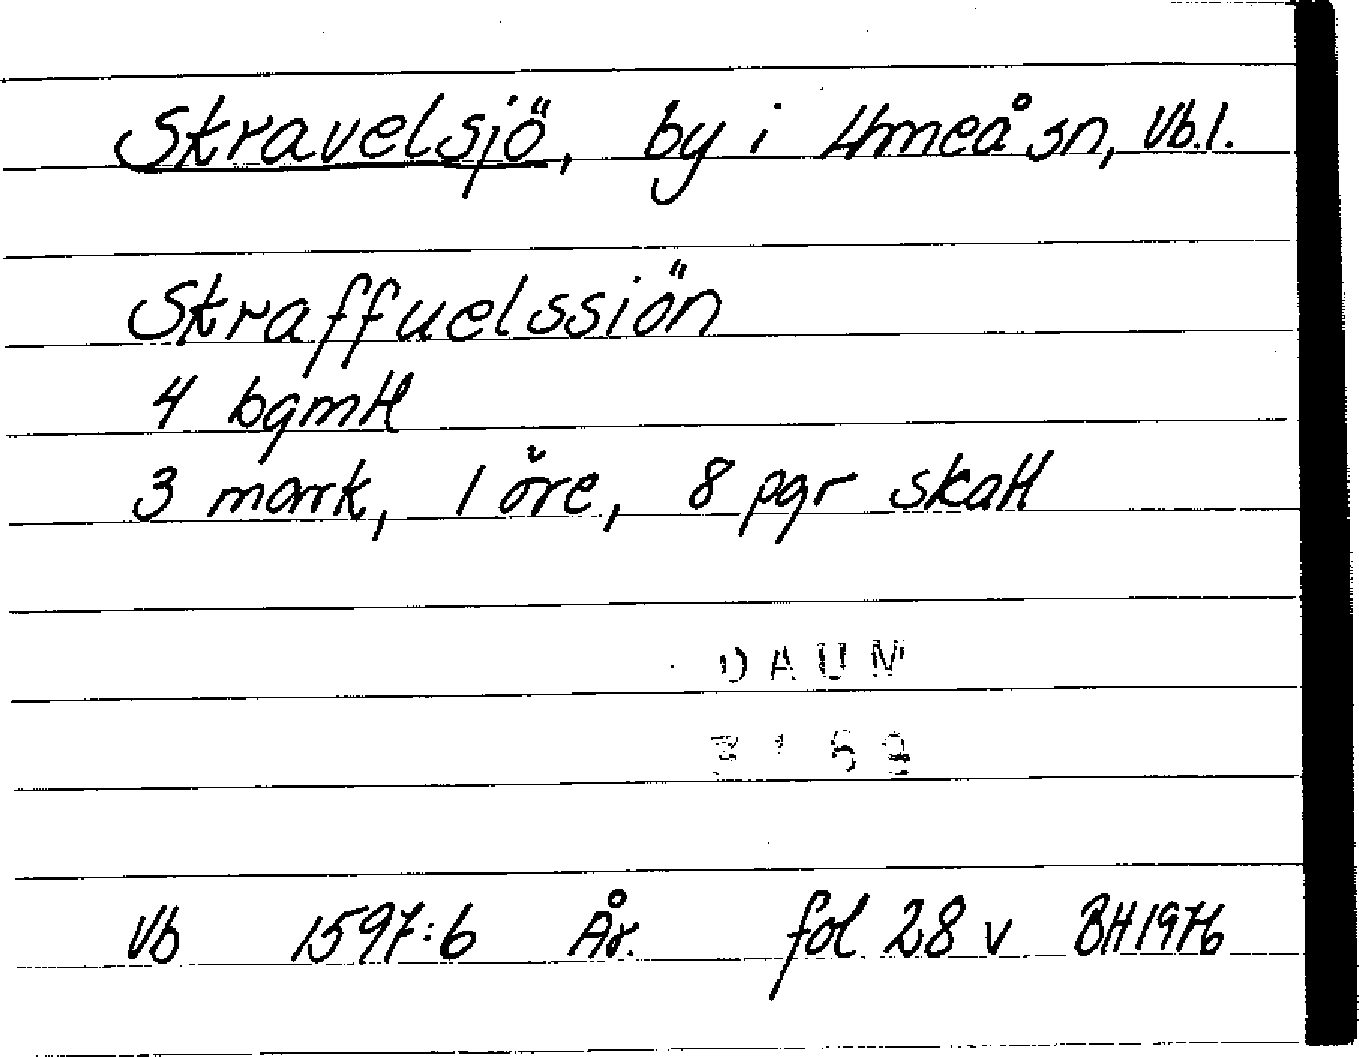 Skravelsjö, by i Umeå sn, Vb.l.
Straffuelssiön
4 bgmtl
3 mark, 1 öre, 8 pgr skatt
DAUM
3159
Vb 1597:6 År. fol 28 v BH 1976